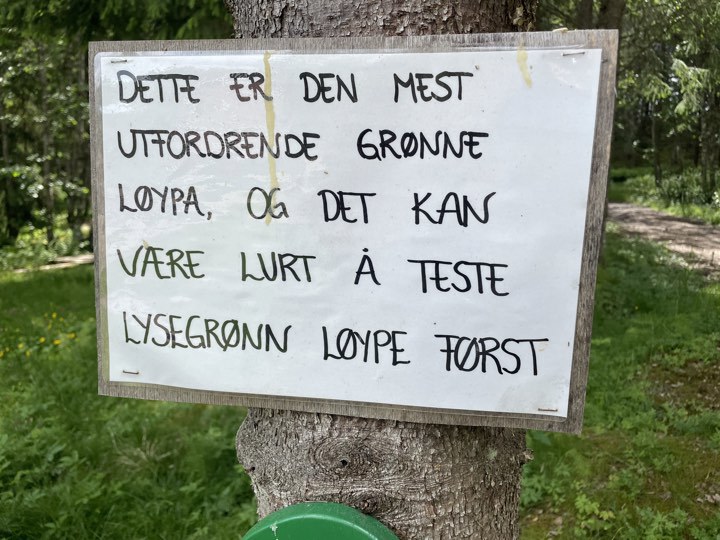 DETTE ER DEN MEST
UTFORDRENDE GRØNNE
LØYPA, OG DET KAN
VÆRE LURT Å TESTE
LYSEGRØNN LØYPE FØRST